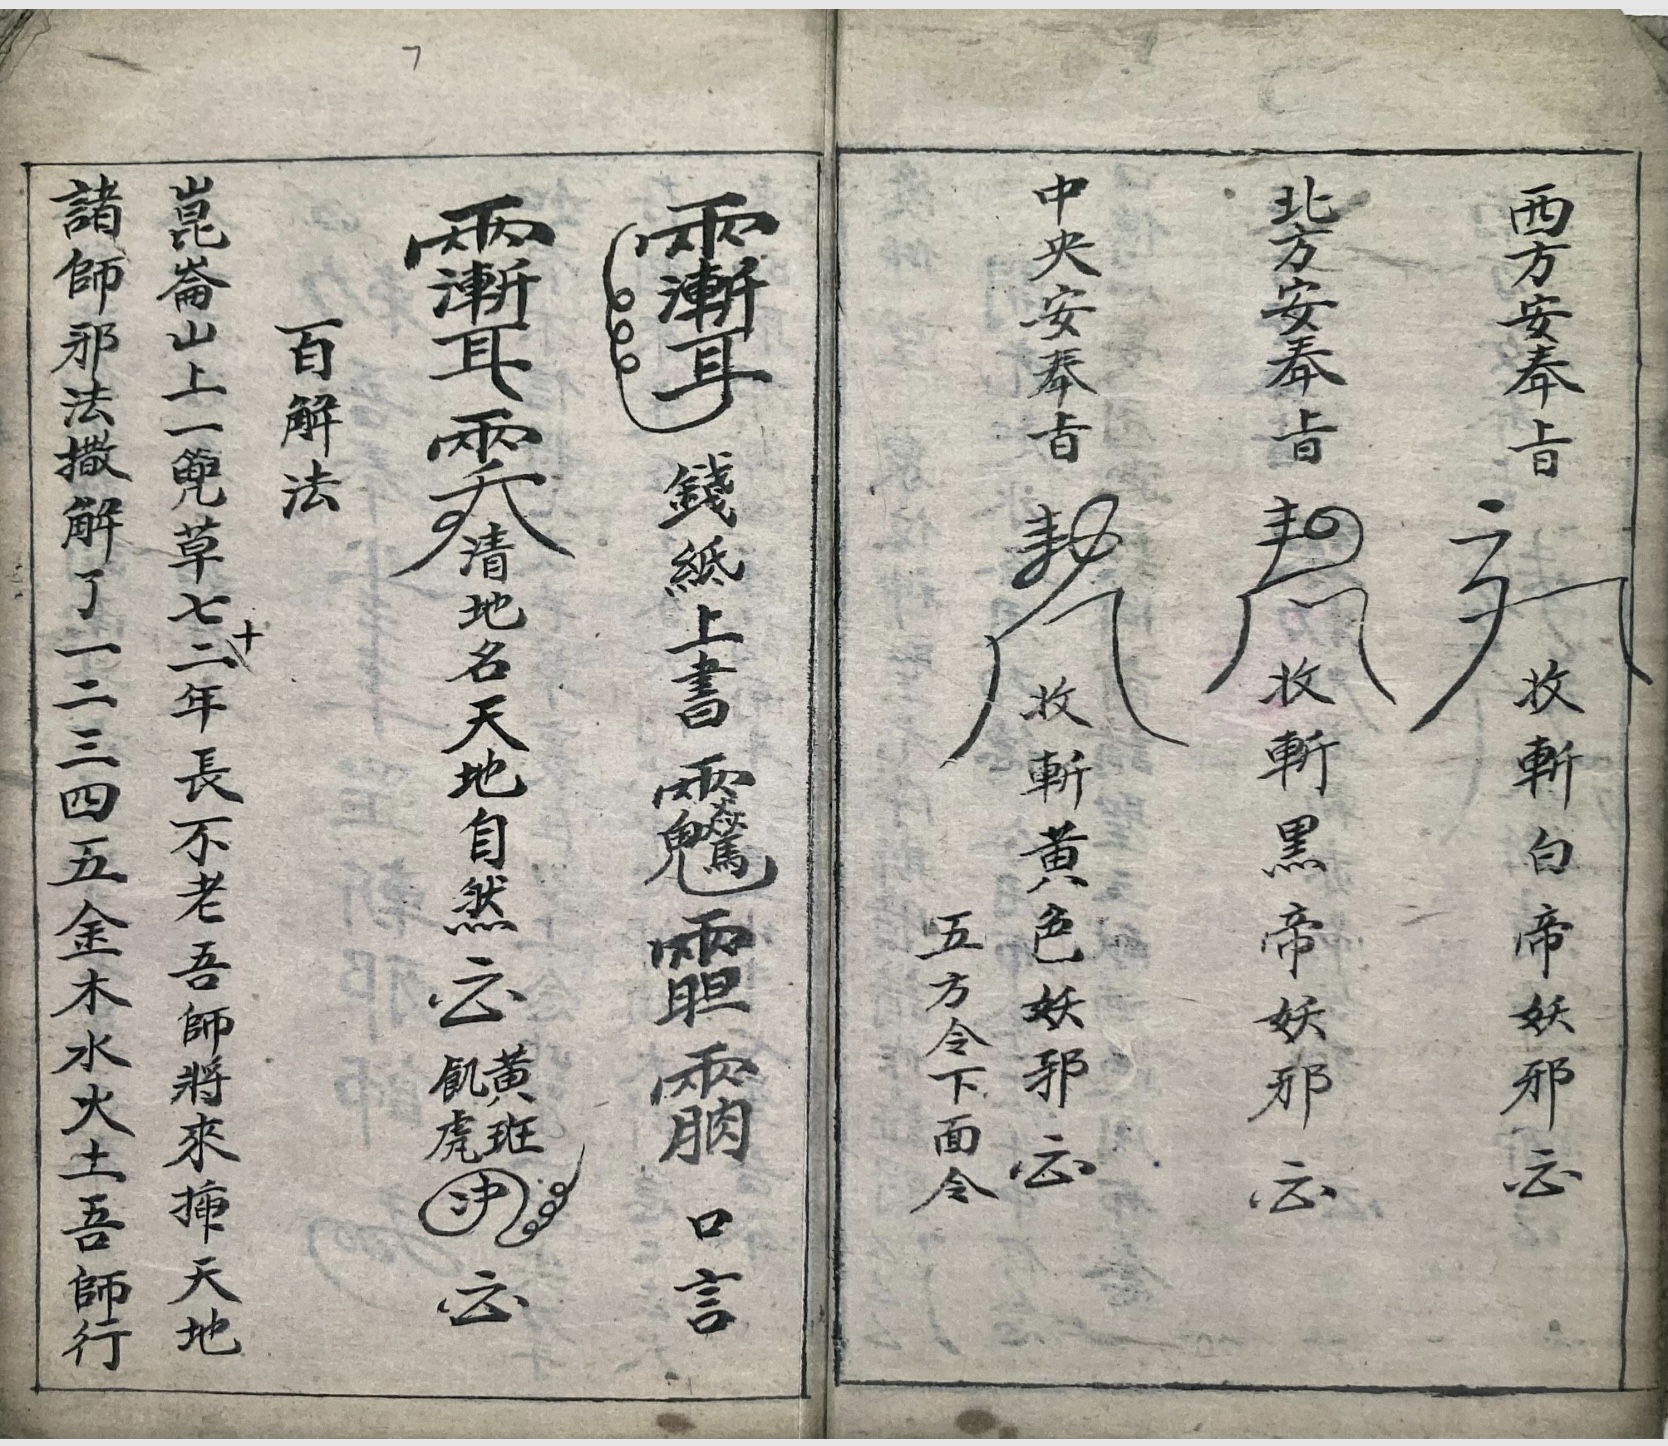 西方安奉旨 收斬白帝妖邪
北方安奉旨 收斬黑帝妖邪
中央安奉旨 收斬黃色妖邪
五方令下面令
錢紙上書 口言
清地名天地自然 黃班飢虎
百解法
崑崙山上一兜草七十二年長不老吾師將來揷天地
諸師邪法撒解了一二三四五金木水火土吾師行